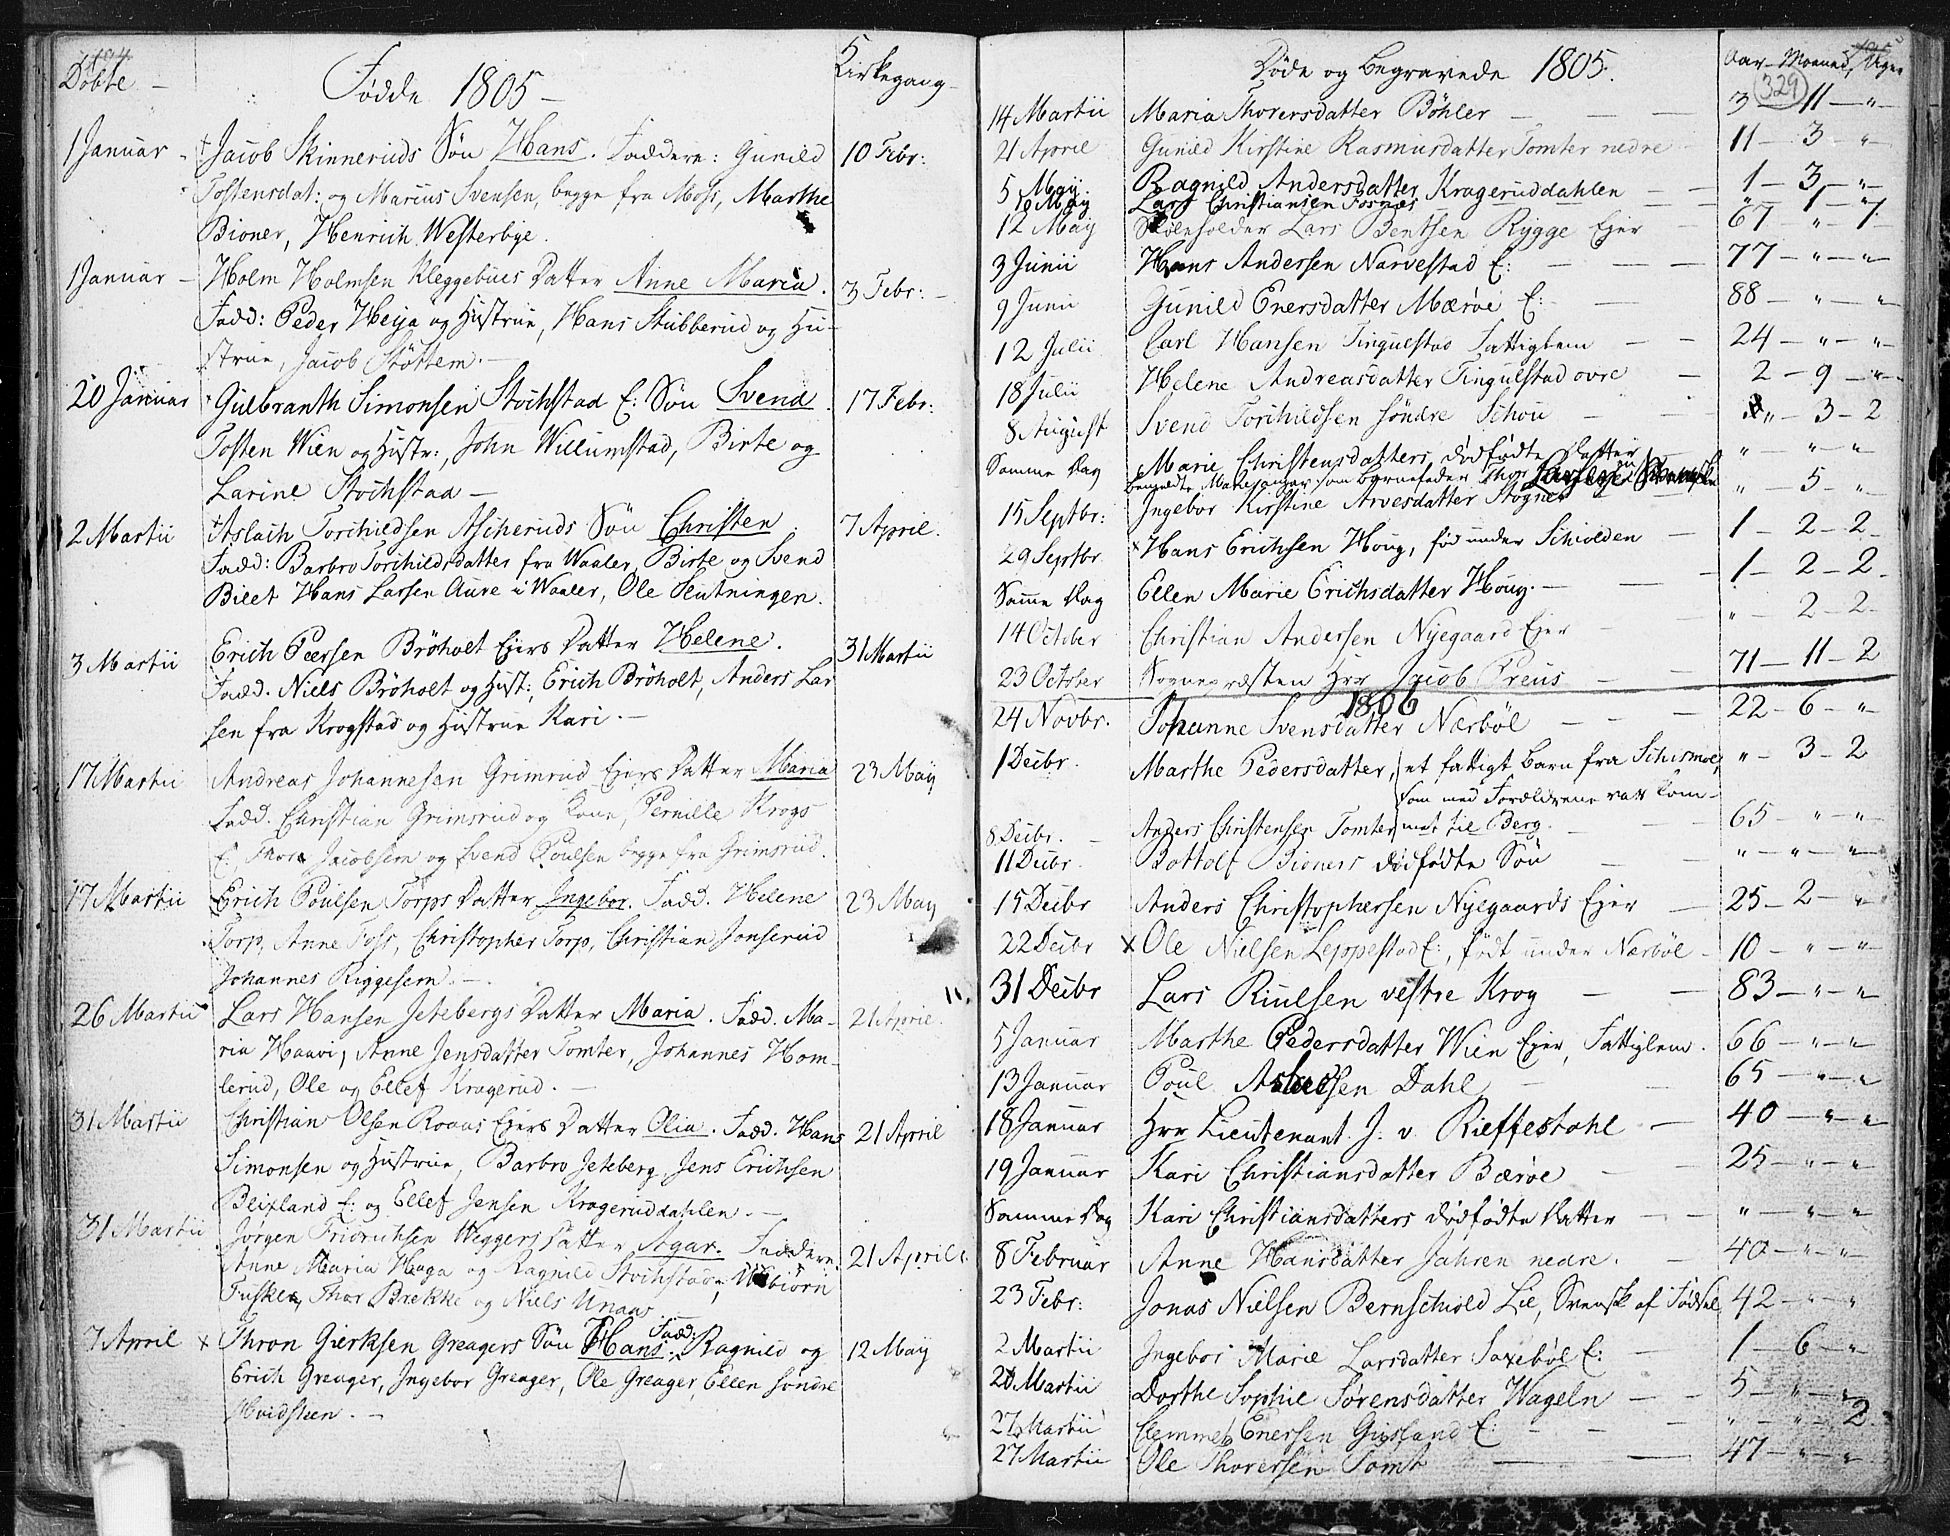 Døbte — Fødde 1805 — Kirkegang
1 Januar - † Jacob Skinneruds Søn Hans. Faddere: Gunild 10 Febr:
Tostensdat: og Marius Svensen, begge fra Moss, Marthe
Bioner, Henrich Westerbye.
1 Januar - Holm Holmsen Kleggebues Datter Anne Maria. 3 Febr: -
Fadd: Peder Heija og Hustrue, Hans Stubberud og Hu-
strue, Jacob Støttem. —
20 Januar Gulbranth Simonsen Stochstad E: Søn Svend. 17 Febr:
Tosten Wien og Hustr:, John Willumstad, Birte og
Larine Stochstad —
2 Martii † Aslach Torchildsen Ascheruds Søn Christen 7 April.
Fadd: Barbro Torchildsdatter fra Waaler, Birte og Svend
Bilet Hans Larsen Aure i Waaler, Ole Slutningen.
3 Martii Erich Peersen Brøholt Ejers Datter Helene. 31 Martii
Fadd. Niels Brøholt og Hust:, Erich Brøholt, Anders Lar
sen fra Krogstad og Hustrue Kari. —
17 Martii Andreas Johannesen Grimsrud Ejers Datter Maria 23 May
Fadd. Christian Grimsrud og Kone, Pernille Krogs
E:, Thore Jacobsen og Svend Poulsen begge fra Grimsrud.
17 Martii Erich Poulsen Torps Datter Ingebor. Fadd. Helene 23 May
Torp, Anne Foss, Christopher Torp, Christian Jonserud
Johannes Riggesern. —
26 Martii Lars Hansen Jetebergs Datter Maria. Fadd. Ma- 21 April.
ria Haavi, Anne Jensdatter Tomter, Johannes Hom-
lerud, Ole og Ellef Kragerud. —
31 Martii Christian Olsen Roaas Ejers Datter Olia. Fadd. Hans 21 April
Simonsen og Hustrue, Barbro Jeteberg, Jens Erichsen
Blixland E: og Ellef Jensen Krageruddahlen. —
31 Martii Jørgen Fridrichsen Weggers Datter Agar. Faddere 21 April
Anne Maria Haga og Ragnild Stochstad, Asbiørn
Fusker, Thor Brekke og Niels Unaas.
7 April × Thron Gierksen Greagers Søn Hans. Fadd: Ragnild og 12 May
Erich Greager, Ingebor Greager, Ole Greager, Ellen søndre
Hvidsteen. —
Døde og Begravede 1805. Aar - Maaned, Uger
329
14 Martii Maria Thorersdatter Bøhler — 3 — 11 — "
21 April Gunild Kirstine Rasmusdatter Tomter nedre 11 — 3 — "
5 May Ragnild Andersdatter Krageruddahlen — 1 — 3 — "
10 May Lars Christiansen Fosnæs " — 1 — "
12 May Skoleholder Lars Bentsen Rygge Ejer 67 — " — 1
3 Junii Hans Andersen Narvestad E: — 77 — " — "
9 Junii Gunild Enersdatter Mærøe E: — 88 — " — "
12 Julii Carl Hansen Tingulstad Fattiglem — 24 — " — "
18 Julii Helene Andreasdatter Tingulstad øvre — 2 — 9 — "
8 August Svend Torchildsen søndre Schou — " — 3 — 2
Samme Dag Marie Christensdatters dødfødte Datter " " — "
Ingebor Kirstine Arvesdatter Stogner " 5 "
15 Septbr:
29 Septbr × Hans Erichsen Houg, fød under Schiolden — 1 — 2 — 2
Samme Dag Ellen Marie Erichsdatter Houg. — 1 — 2 — 2
14 October Christian Andersen Nyegaard Ejer " — 2 — 2
23 October Sognepræsten Hrr Jacob Preus — 71 — 11 — 2
1806
24 Novbr. Johanne Svensdatter Nærbøl — 22 — 6 — "
1 Decbr. Marthe Pedersdatter, et fattigt Barn fra " — 3 — 2
som med Forældrene var kom-
8 Decbr. — Anders Christensen Tomter met til Berg. 65 — " — "
11 Decbr. Bottolf Bioners dødfødte Søn " — " — "
15 Decbr Anders Christophersen Nyegaards Ejer — 25 — 2 — "
22 Decbr × Ole Nielsen Leppestad E:, født under Nærbøl - 10 — " — "
31 Decbr Lars Riulsen vestre Krog — 83 — " — "
5 Januar Marthe Pedersdatter Wien Ejer, Fattiglem. 66 — " — "
13 Januar Poul Dahl 65 — " — "
18 Januar Hrr Lieutenant J: v. Rieffestahl — 40 — " — "
19 Januar Kari Christiansdatter Bærøe 25 — " — "
Samme Dag Kari Christiansdatters dødfødte Datter — " — " — "
8 Februar Anne Hansdatter Jahren nedre. — 40 — " — "
23 Febr: Jonas Nielsen Bernschiold Lie, Svensk af Fødsel 42 — " — "
2 Martii Ingebor Marie Larsdatter Saxebøl E: — 1 — 6 — "
20 Martii Dorthe Sophie Sørensdatter Wageln — 5 — " — "
27 Martii Clemmet Enersen Gisslund E: — " — " — 2
27 Martii Ole Thorersen Tomt — 47 — " — "